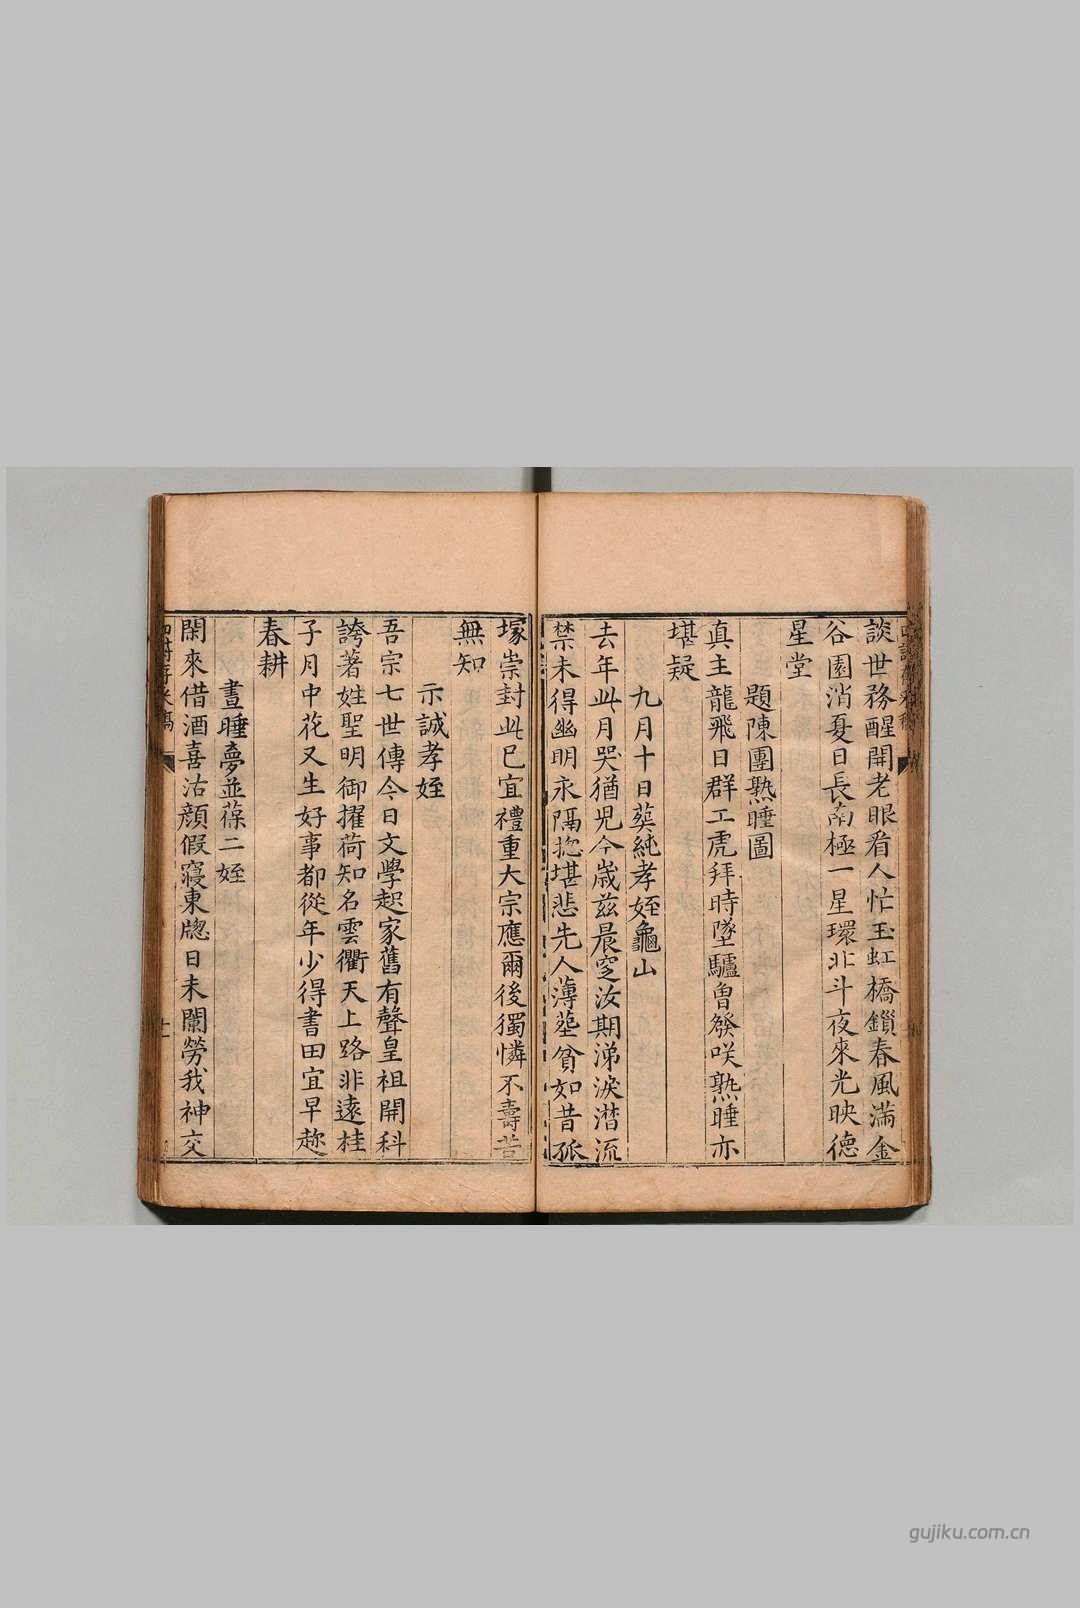 談世務醒開老眼看人忙玉虹橋鎖春風滿金
谷園消夏日長南極一星環北斗夜來光映德
星堂
題陳團熟睡圖
真主龍飛日群工虎拜時墜驢曾發咲熟睡亦
堪疑
九月十日葬純孝姪龜山
去年此月哭猶児今歳兹晨窆汝期涕淚潸流
禁未得幽明永隔揔堪悲先人薄葬貧如昔孤
塚崇封此已宜禮重大宗應爾後獨憐不壽苦
無知
示誠孝姪
吾宗七世傳今日文學起家舊有聲皇祖開科
誇著姓聖明御擢荷知名雲衢天上路非遠桂
子月中花又生好事都從年少得書田宜早趂
春耕
晝睡夢並葆二姪
閑來借酒喜沾顔假寢東牕日未闌勞我神交